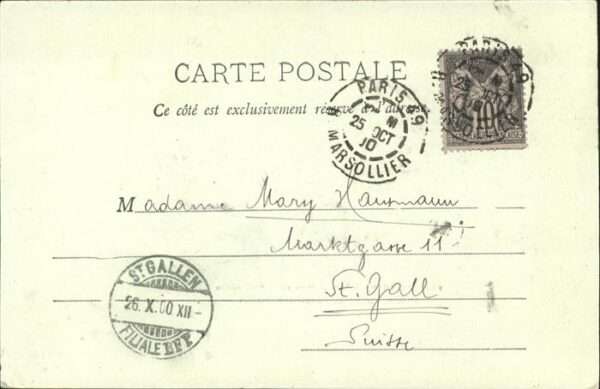 CARTE POSTALE
Ce côté est exclusivement réservé à l'adresse
PARIS
25 OCT
MARSOLLIER
10
PARIS 49
M
25 OCT
MARSOLLIER
Madame Mary Hausmann
Marktgasse 11
St. Gall.
Suisse
ST GALLEN
26. X. 00 XII -
FILIALE BRF